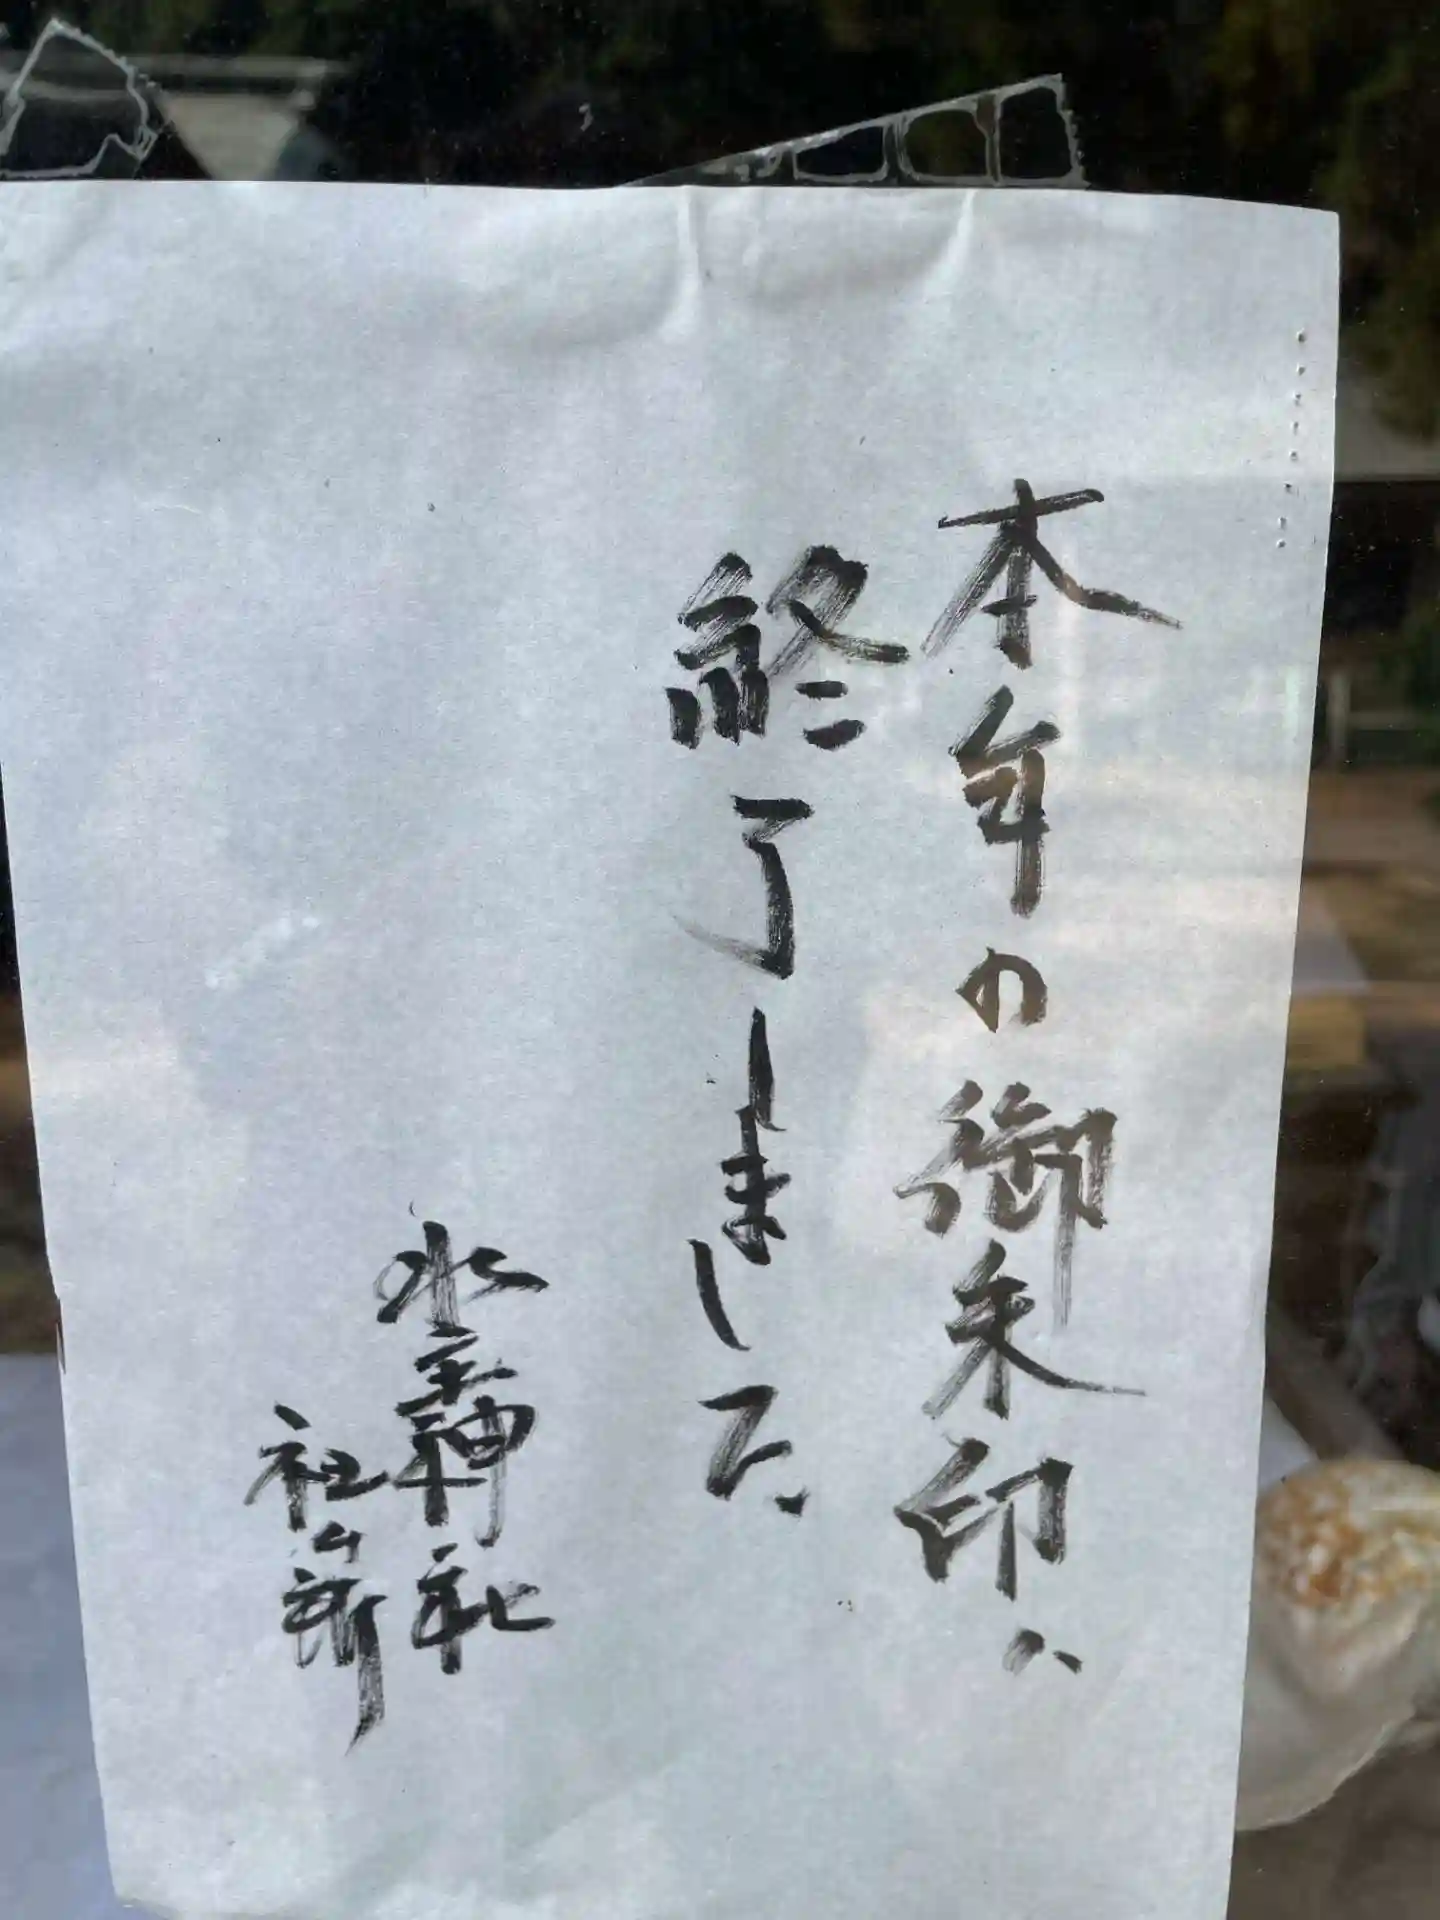 本年の御朱印ハ
終了しました
水主神社
社務所